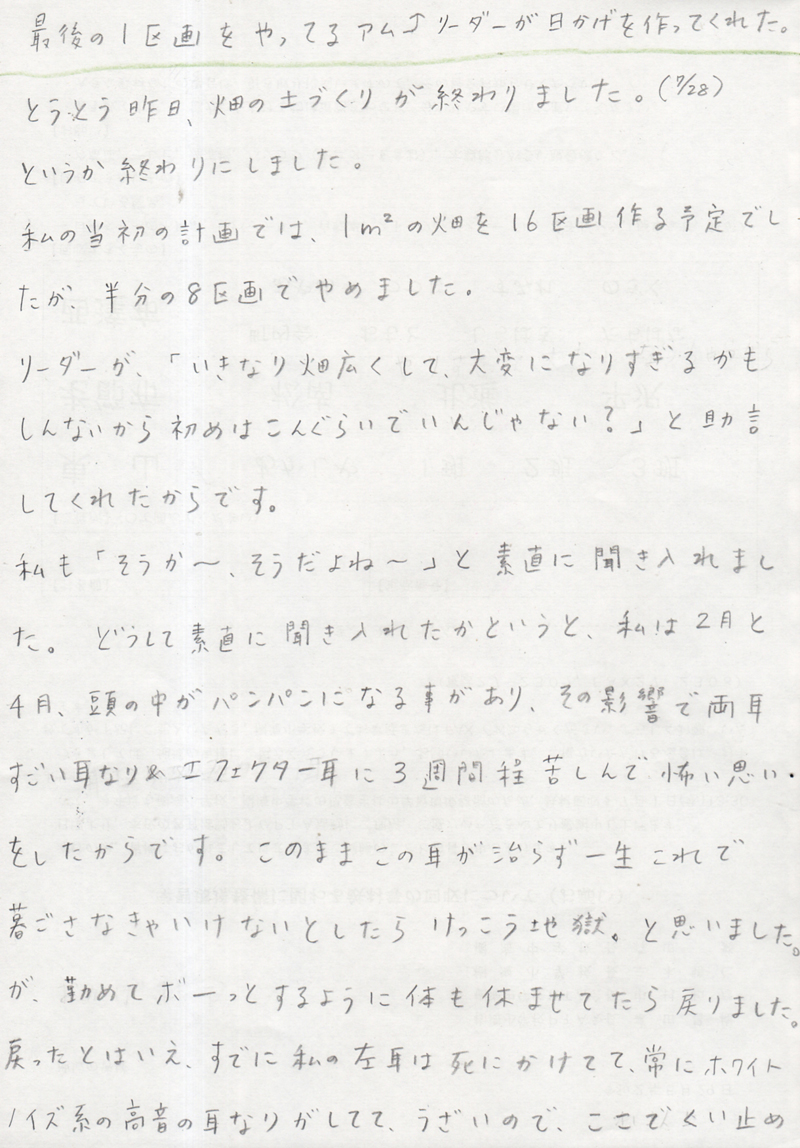 最後の1区画をやってるアム⤴リーダーが日かげを作ってくれた。
とうとう昨日、畑の土づくりが終わりました。(7/28)
というか終わりにしました。
私の当初の計画では、1m²の畑を16区画作る予定でし
たが、半分の8区画でやめました。
リーダーが、「いきなり畑広くして、大変になりすぎるかも
しんないから初めはこんぐらいでいんじゃない?」と助言
してくれたからです。
私も「そうか〜、そうだよね〜」と素直に聞き入れまし
た。どうして素直に聞き入れたかというと、私は2月と
4月、頭の中がパンパンになる事があり、その影響で両耳
すごい耳なり&エフェクター耳に3週間程苦しんで怖い思い・
をしたからです。このままこの耳が治らず一生これで
暮ごさなきゃいけないとしたらけっこう地獄。と思いました。
が、勤めてボーっとするように体も休ませてたら戻りました。
戻ったとはいえ、すでに私の左耳は死にかけてて、常にホワイト
ノイズ系の高音の耳なりがしてて、うざいので、ここでくい止め